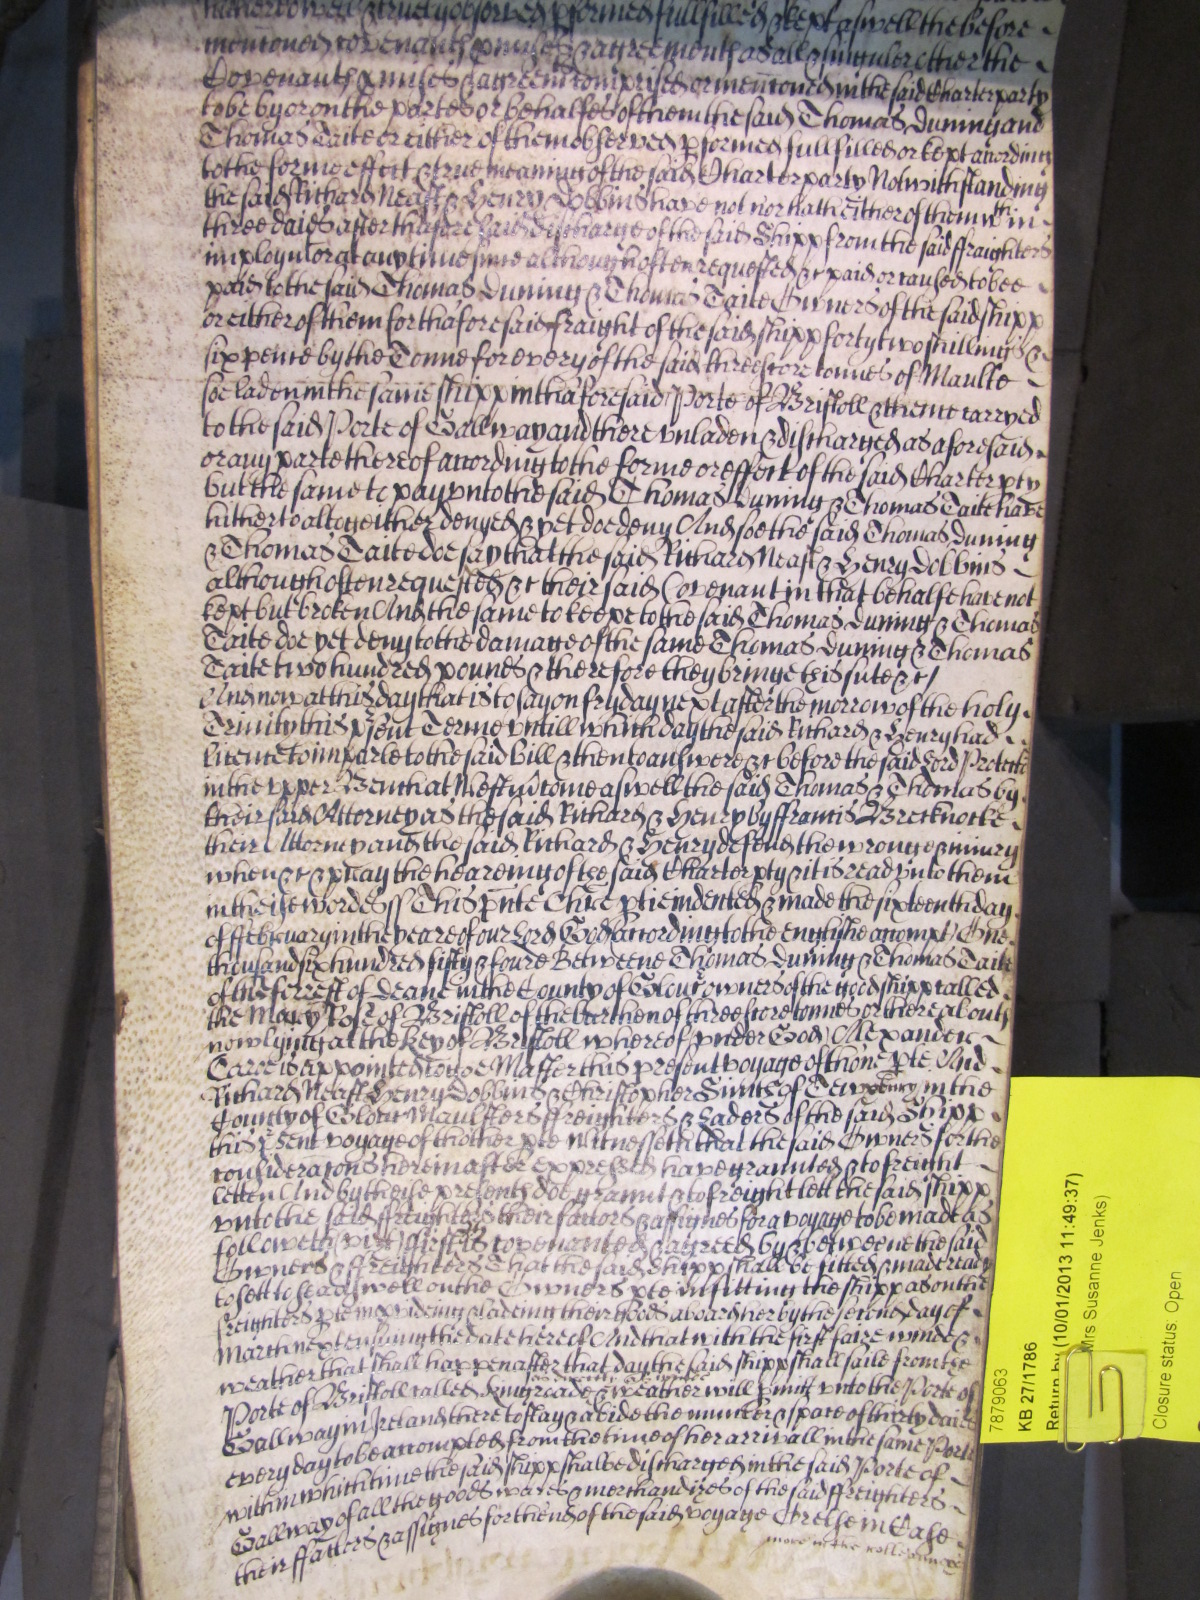 hitherto well & truely observed pformed fullfilled & kept aswell the before
mencioned Covenants pmises & agreements as all & singuler other the
Covenants pmises & agreemts comprised or mencioned in the said Charterparty
to be by or on the partes or behalfes of them the said Thomas Duning and
Thomas Taite or either of them observed pformed fullfilled or kept according
to the forme effect & true meaning of the said Charterparty Notwithstanding
the said Richard Neast & Henry Dobbins have not nor hath either of them wthin
three daies after thaforesaid discharge of the said Shipp from the said ffraighters
imploymt or at any time since although often requested &c paid or caused to bee
paid to the said Thomas Duning & Thomas Taite Owners of the said shipp
or either of them for thaforesaid fraight of the said shipp forty two shillings &
six pence by the Tonne for every of the said threescore tonnes of Maulte
soe laden in the same shipp in thaforesaid Porte of Bristoll & thence carryed
to the said Porte of Gallway and there unladen & discharged as aforesaid
or any parte thereof according to the forme or effect of the said Charterpty
but the same to pay unto the said Thomas Duning & Thomas Taite have
hitherto altogeither denyed & yet doe deny And soe the said Thomas Duning
& Thomas Taite doe say that the said Richard Neast & Henry Dobbins
although often requested &c their said Covenant in that behalfe have not
kept but broken And the same to keepe to the said Thomas Duning & Thomas
Taite doe yet deny to the damage of the same Thomas Duning & Thomas
Taite two hundred pounds & therefore they bringe this sute &c
And now at this day that is to say on fryday next after the morrow of the holy
Trinity this psent Terme untill which day the said Richard & Henry had
licence to imparle to the said bill & then to answere &c before the said Lord Protector
in the upper Bench at Westm come aswell the said Thomas & Thomas by
their said Attorney as the said Richard & Henry by ffrancis Brecknocke
their Attorney and the said Richard & Henry defend the wronge & iniury
when &c & pray the heareing of the said Charterpty & it is read unto them
in theise wordes ss This pnte Chre ptie indented & made the sixteenth day
of ffebruary in the yeare of our Lord God according to the englishe accompt One
thousand six hundred fifty & foure Betweene Thomas Duning & Thomas Taite
of the fforrest of Deane in the County of Glouc owners of the good shipp called
the Mary Rose of Bristoll of the burthen of threescore tonnes or thereabouts
now lying at the Key of Bristoll whereof under God Alexander
is appointed to goe Master this present voyage of thone pte And
Richard Neast Henry Dobbins & Christopher Smith of Tewxbury in the
County of Glouc Maulsters ffreighters & Laders of the said Shipp
this psent voyage of thother pte Witnesseth that the said Owners for the
consideracons hereinafter expressed have graunted & to freight
letten And by theise presents doe graunt & to freight lett the said shipp
unto the said ffreighters their factors & assignes for a voyage to be made as
followeth vizt first is covenanted & agreed by & betweene the said
Owners & ffreighters That the said Shipp shall be fitted & made ready
to sett to sea aswell on the Owners pte in fitting the shipp as on the
freighters pte in provideing & ladeing their goods aboard her by the second day of
March next ensuing the date hereof And that with the first faire winde &
weather that shall happen after that day the said shipp shall saile from the
Porte of Bristoll called Kingroade & weather will pmitt unto the Porte of
Gallway in Ireland there to stay & abide the number & space of thirty daies
every day to be accompted from the time of her arrivall in the same Porte
within which time the said shipp shalbe discharged in the said Porte of
Gallway of all the goods wares & merchandizes of the said ffreighters
their ffactors & assignes for thend of the said voyage
more in the rolle
7879063
KB 27/1786
Return by (10/01/2013 11:49:37)
Mrs Susanne Jenks)
Closure status: Open